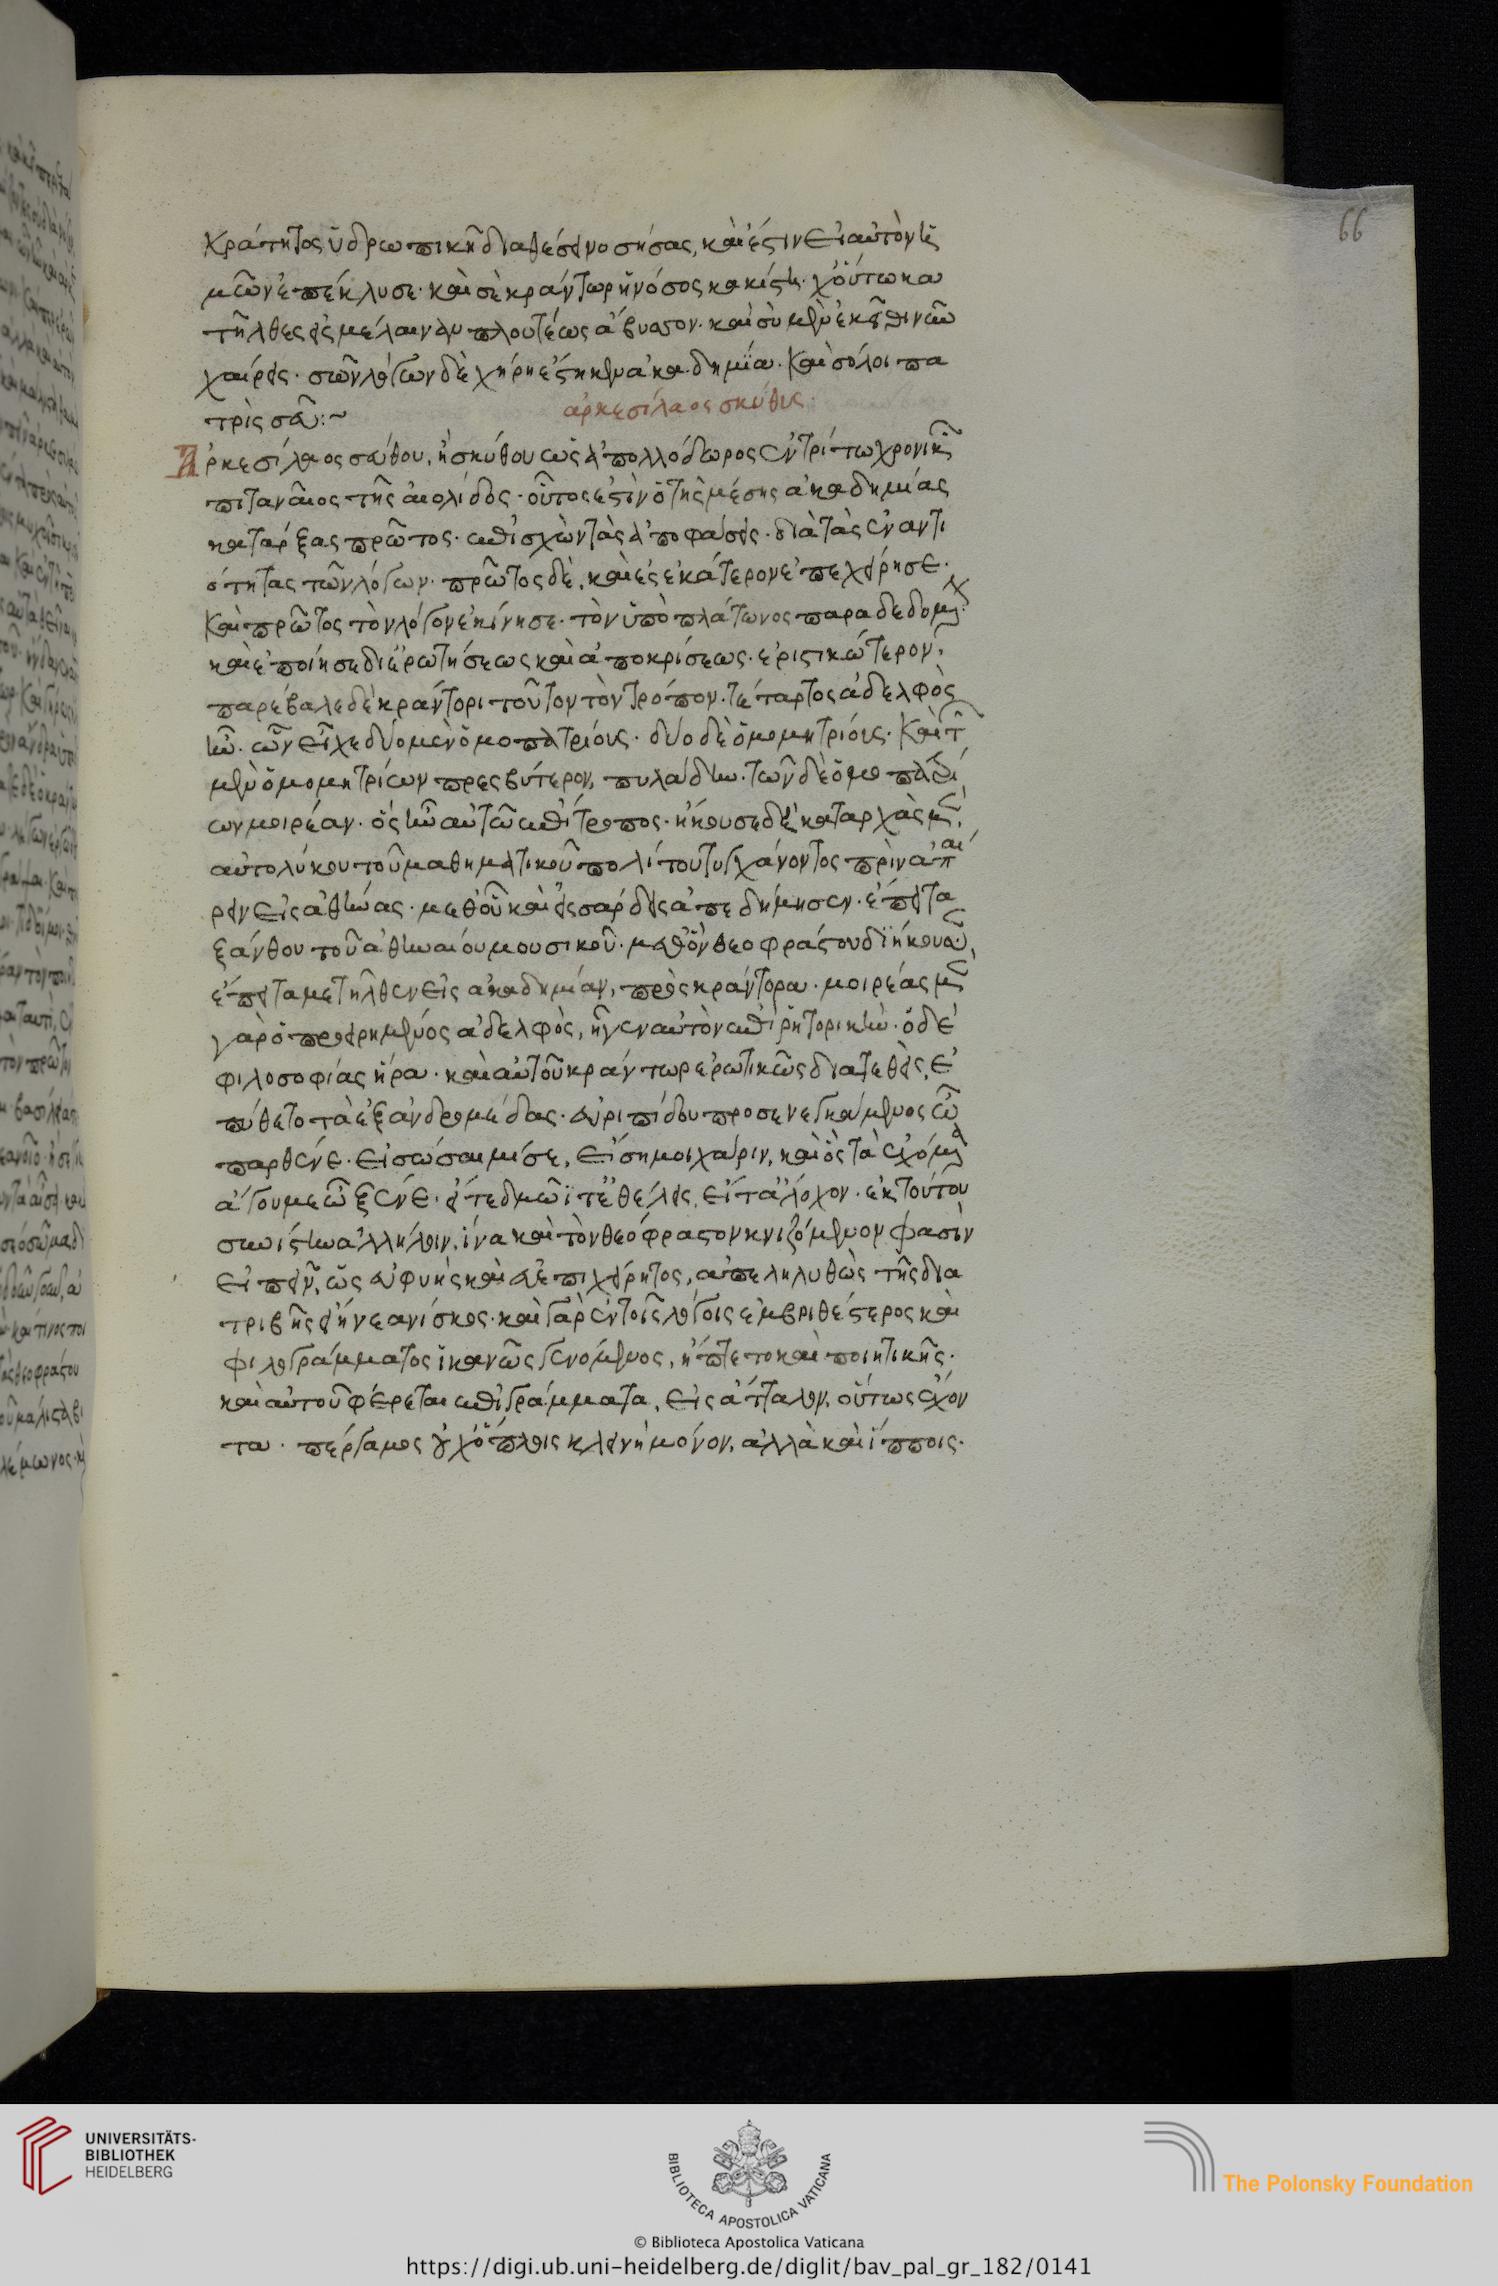 66
κράτητος ὑδρωπικῆ διαθέσει νοσήσας, καὶ ἔστιν εἰς αὐτὸν ἡ
μῶν ἐπέκλυσε· καὶ σὲ κράντωρ ἡ νόσος κακίστη· χ' οὕτω κα
τῆλθες εἰς μέλαιναν πλουτέως ἄβυσσον· καὶ σὺ μὲν ἐκεῖθι νῦν
χαίρεις· σῶν λόγων δὲ χήρη ἔστηκεν ἀκαδημία· καὶ σόλοι πα
τρὶς σεῦ:~
ἀρκεσίλαος σκύθις·
Ἀρκεσίλαος σεύθου, ἢ σκύθου ὡς ἀπολλόδωρος ἐν τρίτω χρονικῶν
πιταναῖος τῆς αἰολίδος· οὗτος ἐστὶν ὁ τῆς μέσης ἀκαδημίας
κατάρξας πρῶτος· ἐπισχὼν τὰς ἀποφάσεις· διὰ τὰς ἐναντι
ότητας τῶν λόγων· πρῶτος δὲ, καὶ ἐς ἑκάτερον ἐπεχείρησε·
καὶ πρῶτος τὸν λόγον ἐκίνησε· τὸν ὑπὸ πλάτωνος παραδεδομένον·
καὶ ἐποίησε δι' ἐρωτήσεως καὶ ἀποκρίσεως· ἐριστικώτερον·
παρέβαλε δὲ κράντορι τοῦτον τὸν τρόπον· τέταρτος ἀδελφὸς
ἦν· ὧν εἶχε δύο μὲν ὁμοπατρίους· δύο δὲ ὁμομητρίους· καὶ τῶν
μὲν ὁμομητρίων πρεσβύτερον, πυλάδην· τῶν δὲ ὁμοπατρί
ων μοιρέαν· ὃς ἦν αὐτῶ ἐπίτροπος· ἤκουσε δὲ καταρχὰς μὲν,
αὐτολύκου τοῦ μαθηματικοῦ πολίτου τυγχάνοντος πρὶν ἀπαί
ρειν εἰς ἀθήνας· μεθ' οὗ καὶ εἰς σάρδεις ἀπεδήμησεν· ἔπειτα
ξάνθου τοῦ ἀθηναίου μουσικοῦ· μεθ' ὃν θεοφράστου διήκουσεν,
ἔπειτα μετῆλθεν εἰς ἀκαδημίαν, πρὸς κράντορα· μοιρέας μὲν
γὰρ ὁ προειρημένος ἀδελφὸς, ἦγεν αὐτὸν ἐπὶ ῥητορικήν· ὁ δὲ
φιλοσοφίας ἤρα· καὶ αὐτοῦ κράντωρ ἐρωτικῶς διατεθεὶς, ἐ
πύθετο τὰ ἐξ ἀνδρομέδας· εὐριπίδου προσενεγκάμενος ὦ
παρθένε· εἰ σώσαιμι σε, εἴση μοι χάριν, καὶ ὃς τὰ ἐχόμενα
ἄγου με ὦ ξένε· εἴτε δμωΐ τ' ἐθέλεις, εἴτ' ἄλοχον· ἐκ τούτου
συνίστην ἀλλήλοιν, ἵνα καὶ τὸν θεόφραστον κνιζόμενον φασὶν
εἰπεῖν, ὡς εὐφυὴς καὶ εὐεπιχείρητος, ἀπεληλυθὼς τῆς δια
τριβῆς εἴη νεανίσκος· καὶ γὰρ ἐν τοῖς λόγοις ἐμβριθέστερος καὶ
φιλογράμματος ἱκανῶς γενόμενος, ἥπτετο καὶ ποιητικῆς·
καὶ αὐτοῦ φέρεται ἐπιγράμματα, εἰς ἄτταλον, οὕτως ἔχον
τα· πέργαμος οὐχ' ὅπλοις κλεινὴ μόνον, ἀλλὰ καὶ ἵπποις·
UNIVERSITÄTS-
BIBLIOTHEK
HEIDELBERG
BIBLIOTECA APOSTOLICA VATICANA
The Polonsky Foundation
© Biblioteca Apostolica Vaticana
https://digi.ub.uni-heidelberg.de/diglit/bav_pal_gr_182/0141